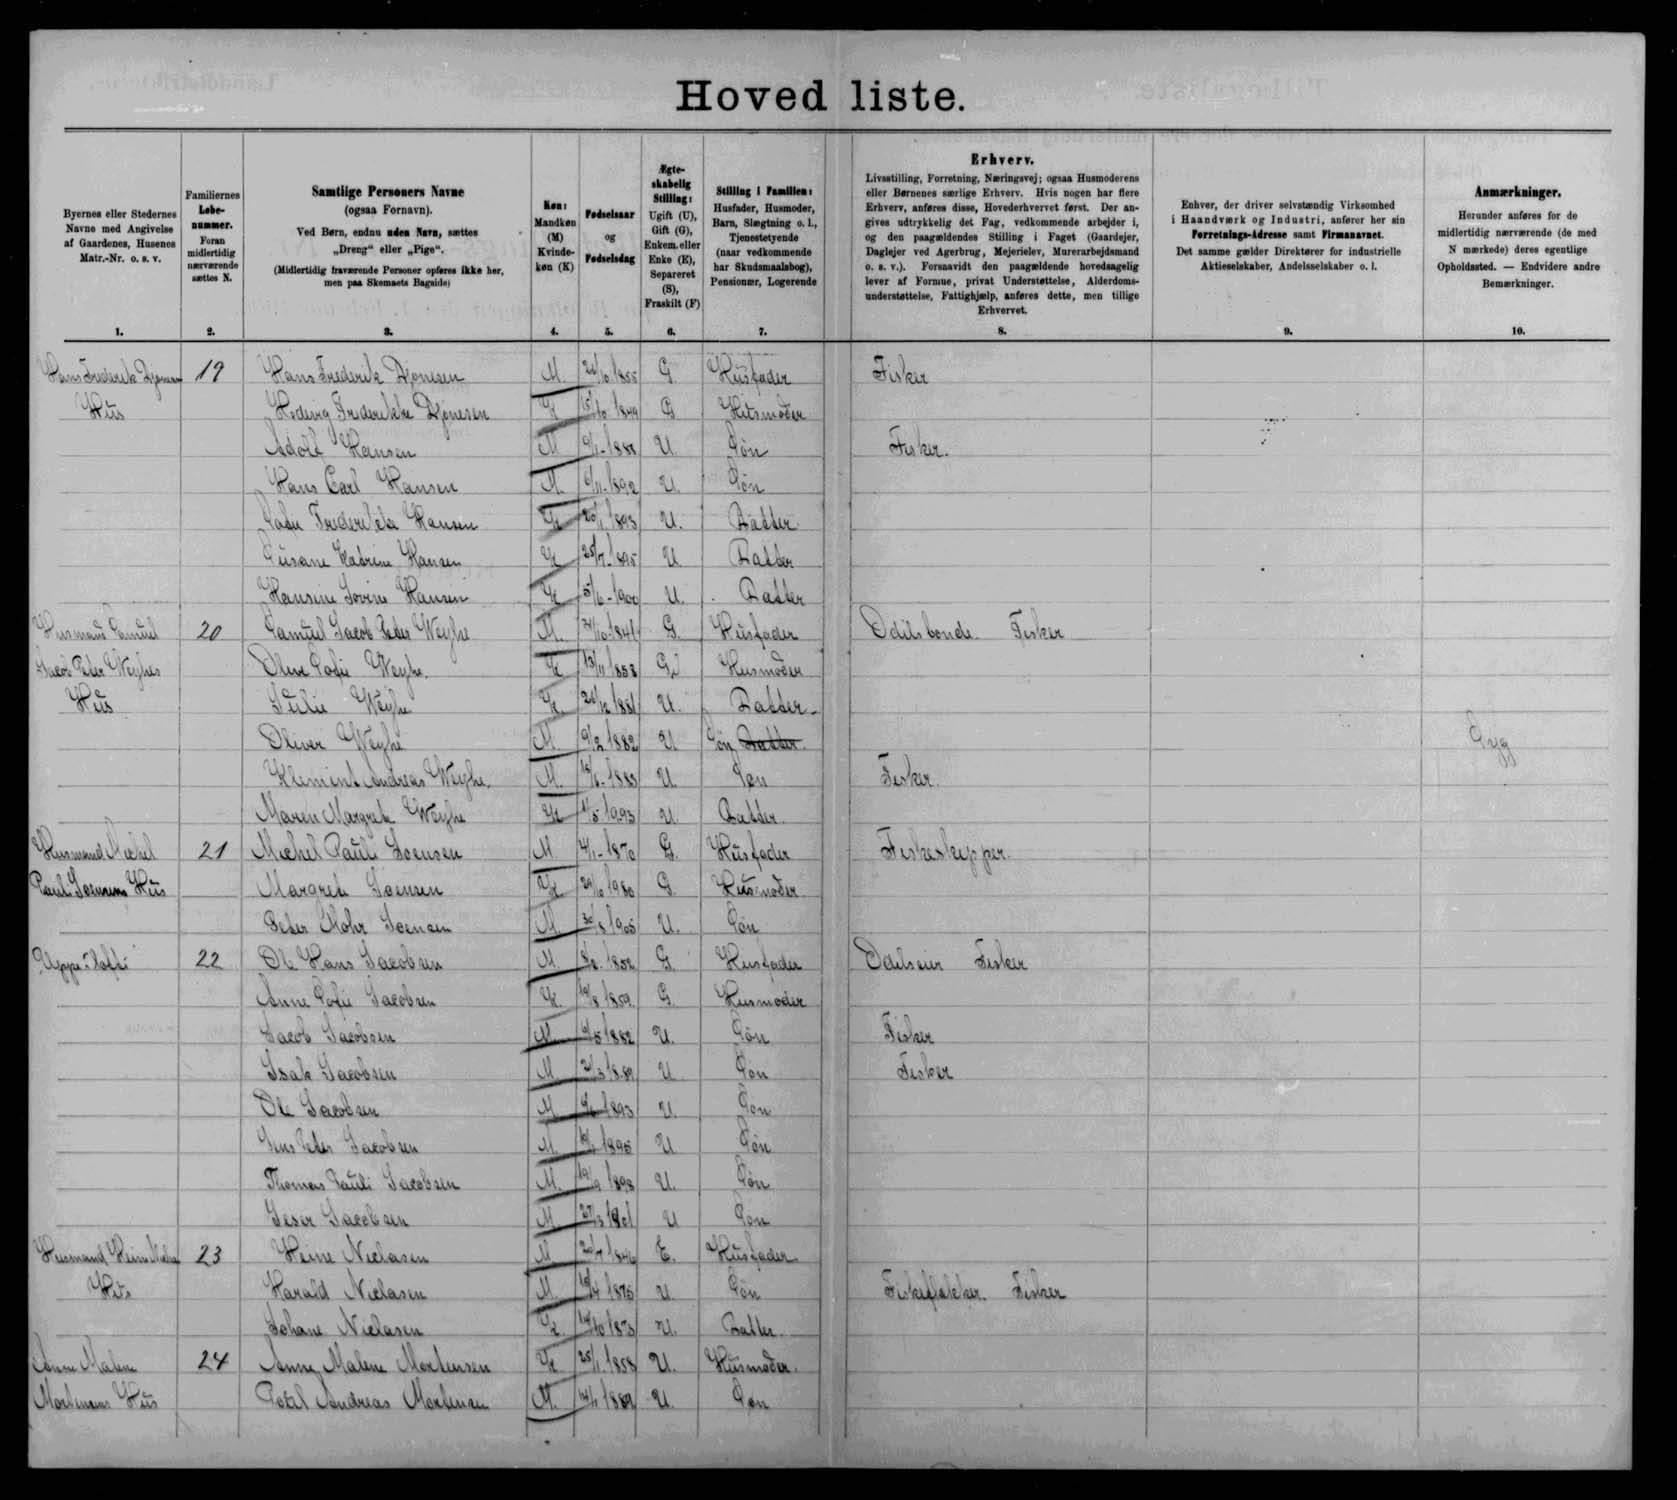 Hovedliste.
Byernes eller Stedernes
Navne med Angivelse
af Gaardenes, Husenes
Matr.-Nr. o. s. v.
1.
Familiernes
Løbe-
nummer.
Foran
midlertidig
nærværende
sættes N.
2.
Samtlige Personers Navne
(ogsaa Fornavn).
Ved Børn, endnu uden Navn, sættes
„Dreng“ eller „Pige“.
(Midlertidig fraværende Personer opføres ikke her,
men paa Skemaets Bagside)
3.
Køn:
Mandkøn
(M)
Kvinde-
køn (K)
4.
Fødselsaar
og
Fødselsdag
5.
Ægte-
skabelig
Stilling:
Ugift (U),
Gift (G),
Enkem. eller
Enke (E),
Separeret
(S),
Fraskilt (F)
6.
Stilling i Familien:
Husfader, Husmoder,
Barn, Slægtning o. l.,
Tjenestetyende
(naar vedkommende
har Skudsmaalsbog),
Pensionær, Logerende
7.
Erhverv.
Livsstilling, Forretning, Næringsvej; ogsaa Husmoderens
eller Børnenes særlige Erhverv. Hvis nogen har flere
Erhverv, anføres disse, Hovederhvervet først. Der an-
gives udtrykkelig det Fag, vedkommende arbejder i,
og den paagældendes Stilling i Faget (Gaardejer,
Daglejer ved Agerbrug, Mejerielev, Murerarbejdsmand
o. s. v.). Forsaavidt den paagældende hovedsagelig
lever af Formue, privat Understøttelse, Alderdoms-
understøttelse, Fattighjælp, anføres dette, men tillige
Erhvervet.
8.
Enhver, der driver selvstændig Virksomhed
i Haandværk og Industri, anfører her sin
Forretnings-Adresse samt Firmanavnet.
Det samme gælder Direktører for industrielle
Aktieselskaber, Andelsselskaber o. l.
9.
Anmærkninger.
Herunder anføres for de
midlertidig nærværende (de med
N mærkede) deres egentlige
Opholdssted. — Endvidere andre
Bemærkninger.
10.
Hans Frederik Djonesen 19 Hans Frederik Djonesen M. 1855 G. Husfader Fisker
Hus Hedevig Frederikke Djonesen K 15/10 1849 G Husmoder
Adolf Hansen M 1888 U. Søn Fisker.
Hans Carl Hansen M. 6/11-1892 U. Søn
Sofie Frederikka Hansen K 20/1 1893 U. Datter
Susane Katrine Hansen K 25/7-1895 U Datter
Hansine Jovine Hansen K 5/6-1900 U. Datter
Husmand Samuel 20 Samuel Jacob Peter Weyhe M. 1841 G. Husfader Odelsbonde. Fisker
Jacob Peter Weyhes Oline Sofie Weyhe. K 13/11 1853 G Husmoder
Hus Julie Weyhe K. 20/12 1881 U. Datter
Oliver Weyhe M 9/2 1882 U Søn Datter. Syg
Klemint Andreas Weyhe. M. 1883 U. Søn Fisker.
Maren Margrete Weyhe K 1/5 1993 U. Datter.
Husmand Michel 21 Michel Pauli Joensen M. 1870 G. Husfader Fiskeskipper.
Pauli Joensens Hus Margreta Joensen K 1980 G. Husmoder
Peter Mohr Joensen M. 30/8 1905 U. Søn
22 Ole Hans Jacobsen M. 1852 G. Husfader Odelseier Fisker
Anne Sofie Jacobsen K. 19/8 1859. G. Husmoder
Jacob Jacobsen M. 1882 U. Søn Fisker
Isak Jacobsen M. 21/3 1889 U Søn Fisker
Ole Jacobsen M 1893 U. Søn
Jens Peter Jacobsen M. 1895 U Søn
Thomas Pauli Jacobsen M. 19/9 1898 U. Søn
Jeser Jacobsen M 27/3 1901 U Søn
Husmand Heine 23 Heine Niclasen M 20/7 1846 E. Husfader
Hus Harald Niclasen M. 18/4 1875 U. Søn Fisker
Johane Niclasen K. 14/10 1873 U. Datter.
Anne Malene 24 Anne Malene Mortensen K 25/1 1858 U. Husmoder.
Mortensens Hus Potel Andreas Mortensen M. 14/1 1889 U. Søn